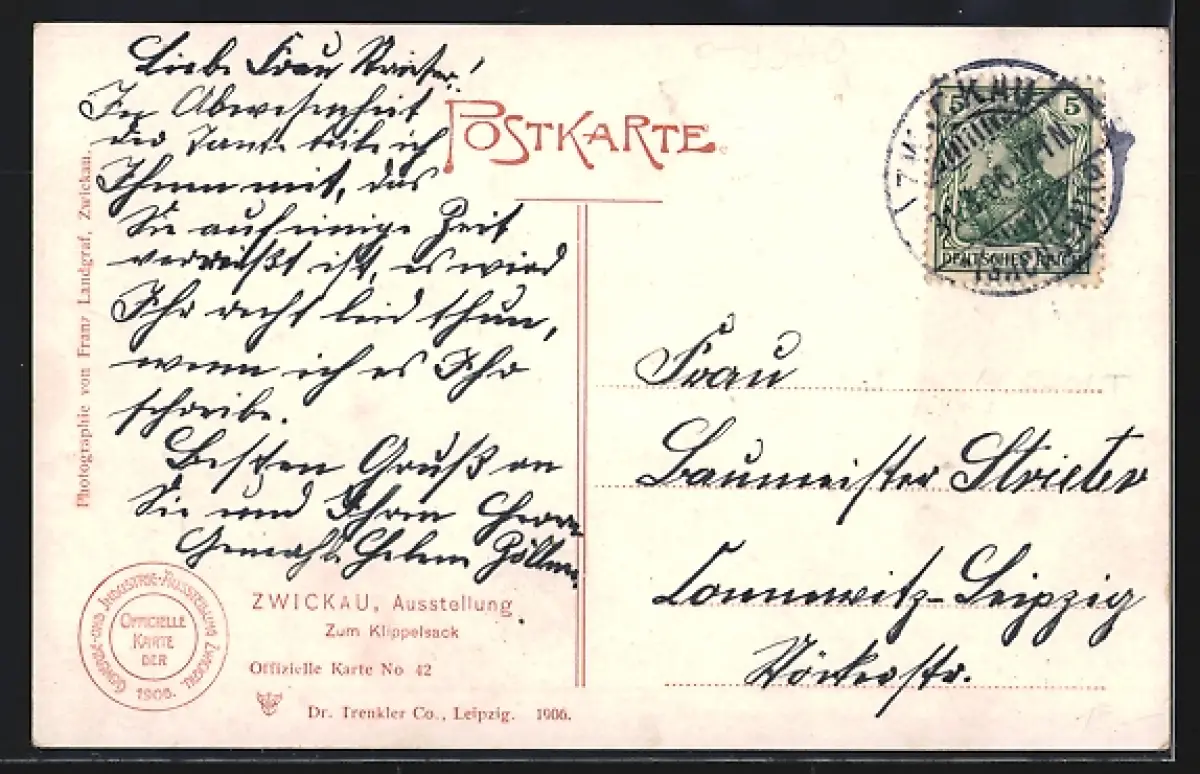 Liebe Frau
In Abwesenheit
der Tante teile ich
Ihnen mit, das
Sie auf einige Zeit
verreißt ist, es wird
Ihr recht leid thun,
wenn ich es Ihr
schreibe.
Besten Gruß an
Sie und Ihren Herrn
Gemahl. Helene Zöllner.
Photographie von Franz Landgraf, Zwickau.
GEWERBE-UND INDUSTRIE-AUSSTELLUNG ZWICKAU
OFFICIELLE
KARTE
DER
1906.
ZWICKAU, Ausstellung
Zum Klippelsack
Offizielle Karte No 42
Dr. Trenkler Co., Leipzig. 1906.
POSTKARTE
5 5
DEUTSCHES REICH
Frau
Baumeister Strieter
Connewitz-Leipzig